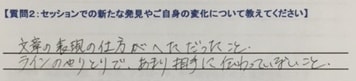 【質問2：セッションでの新たな発見やご自身の変化について教えてください】
文章の表現の仕方がへただったこと。
ラインのやりとりで、あまり相手に伝わっていないこと。